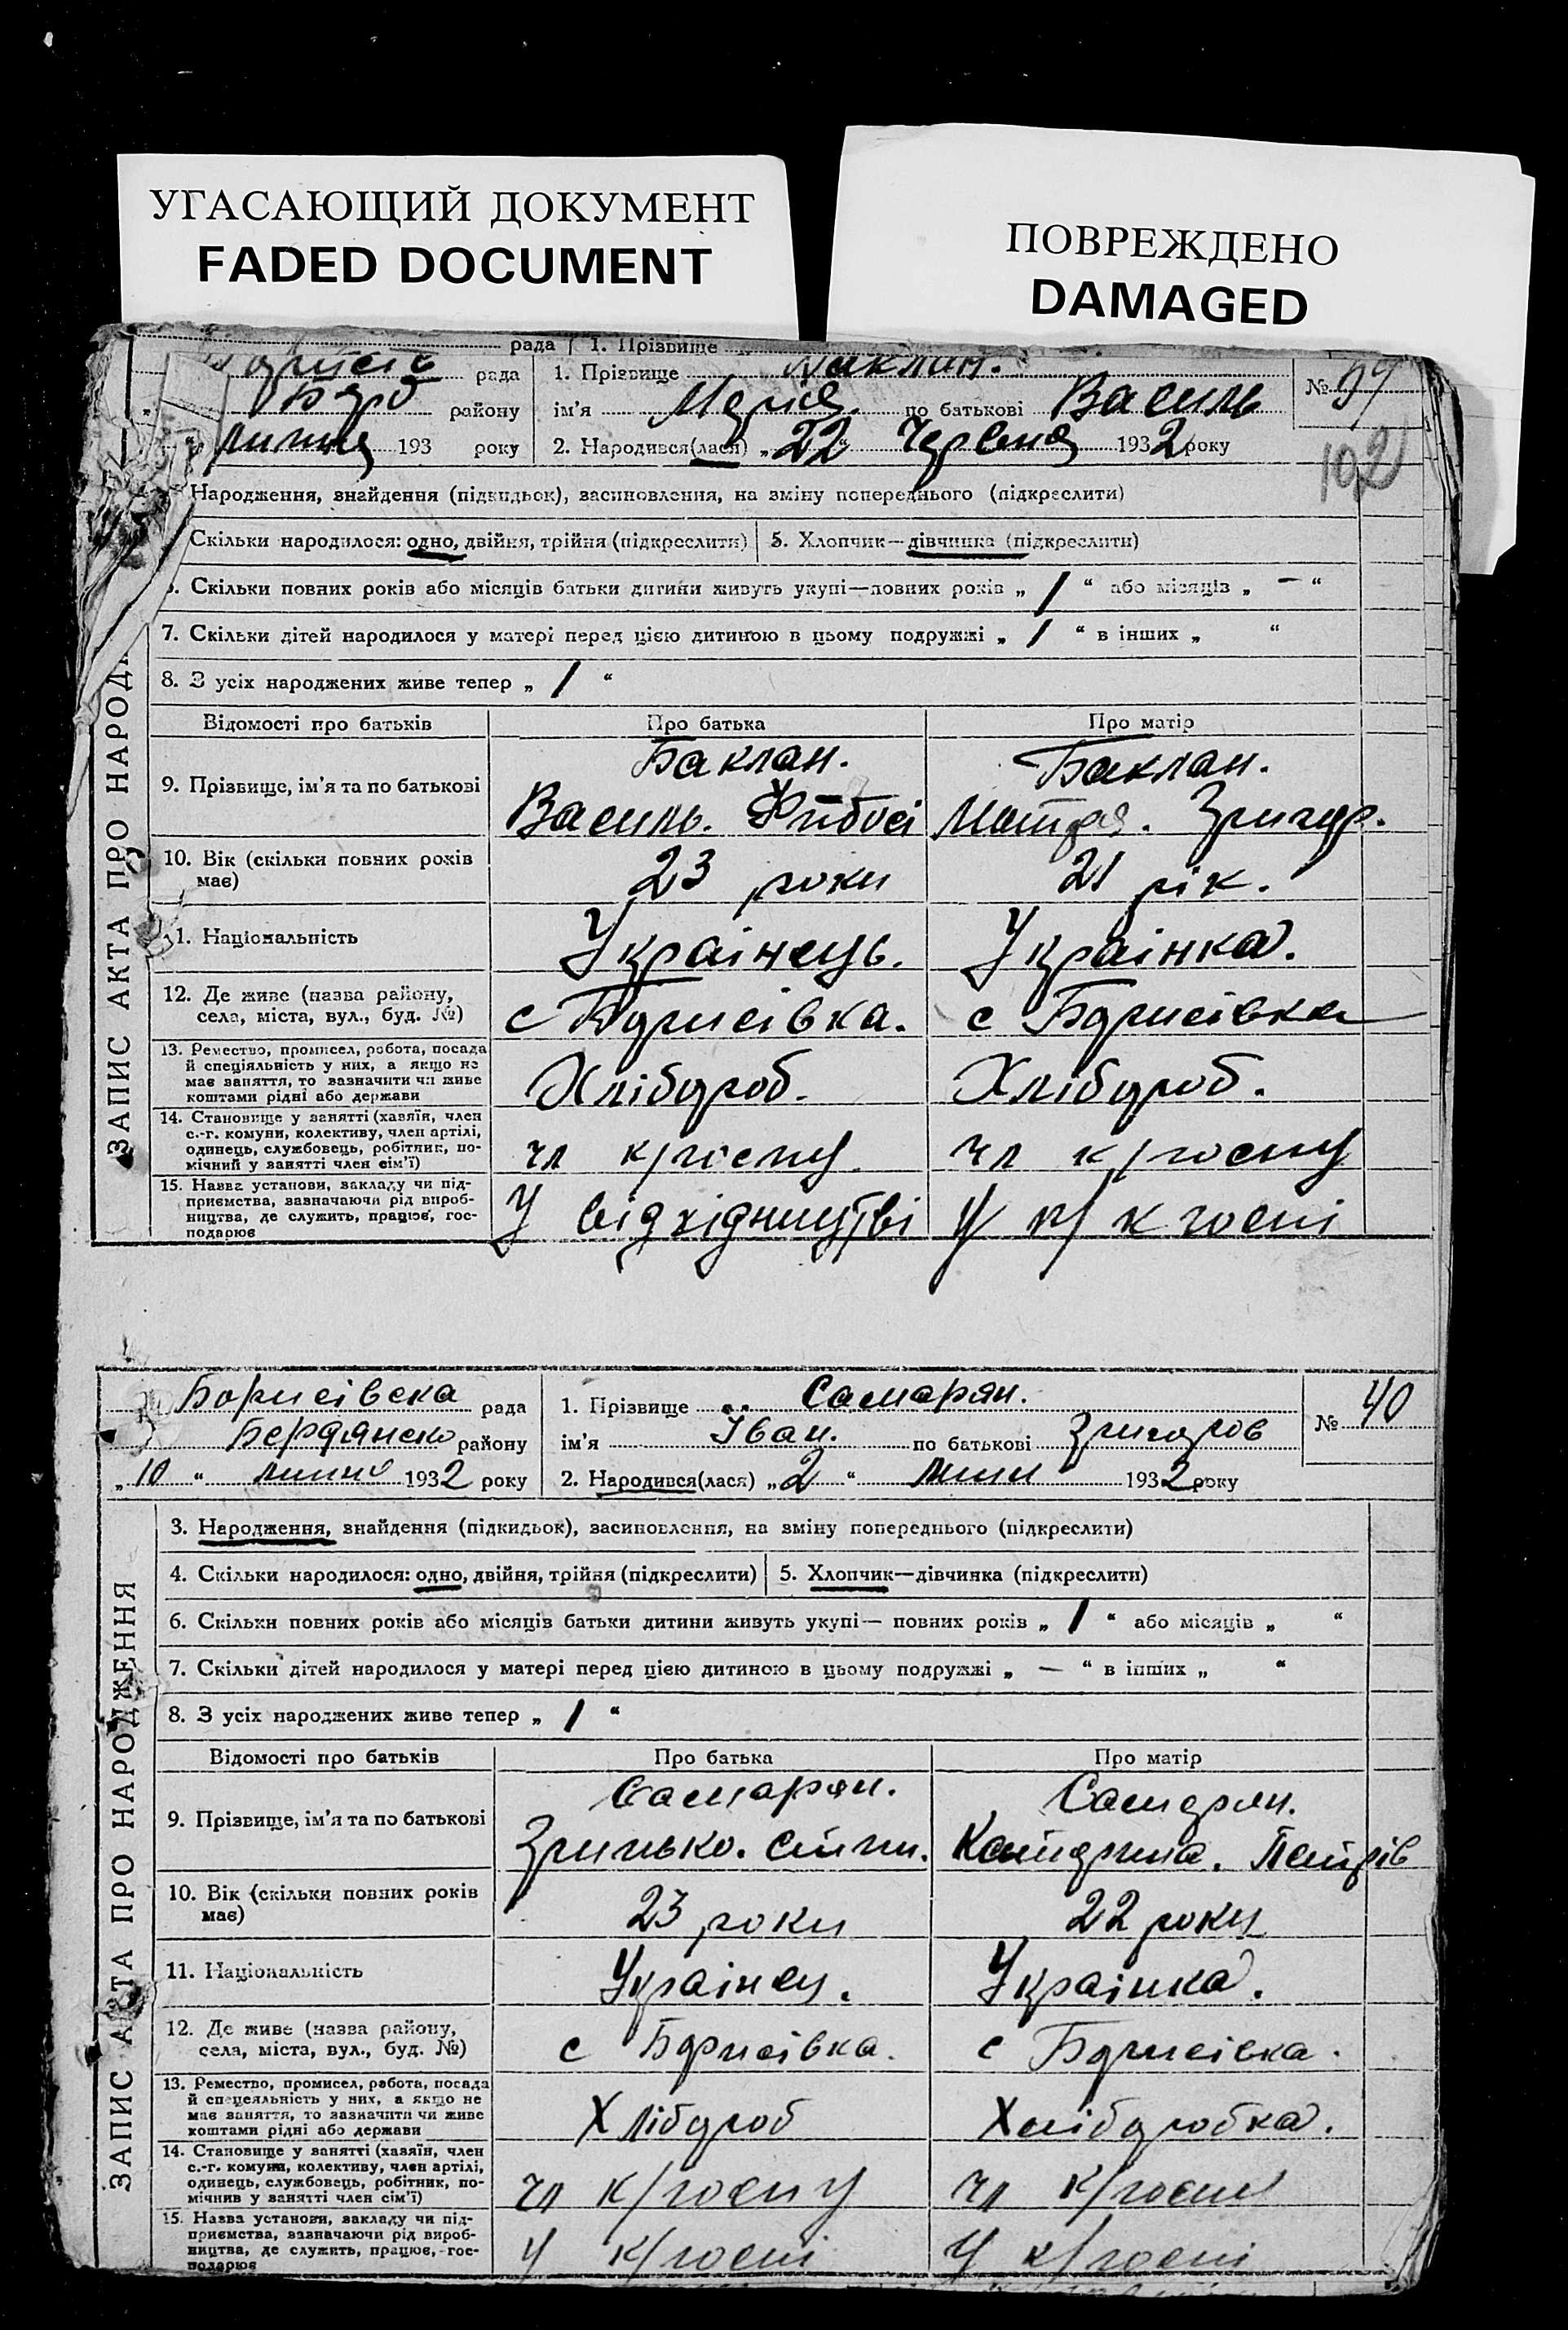 УГАСАЮЩИЙ ДОКУМЕНТ
FADED DOCUMENT
ПОВРЕЖДЕНО
DAMAGED
рада 1. Прізвище
рада 1. Прізвище Баклан.
№
району ім'я Марія. по батькові Василь
102
193 року 2. Народився(лася) „22“ Червня 1932 року
Народження, знайдення (підкидьок), засиновлення, на зміну попереднього (підкреслити)
Скільки народилося: одно, двійня, трійня (підкреслити) 5. Хлопчик—дівчинка (підкреслити)
Скільки повних років або місяців батьки дитини живуть укупі—повних років „ 1 “ або місяців „ — “
7. Скільки дітей народилося у матері перед цією дитиною в цьому подружжі „ 1 “ в інших „ “
8. З усіх народжених живе тепер „ 1 “
ЗАПИС АКТА ПРО НАРОД
Відомості про батьків Про батька Про матір
9. Прізвище, ім'я та по батькові
Баклан. Баклан.
Василь. Григор.
10. Вік (скільки повних років має)
23 роки 21 рік.
11. Національність Українець. Українка.
12. Де живе (назва району, села, міста, вул., буд. №)
с Борисівка. с Борисівка
13. Ремество, промисел, робота, посада
й спеціяльність у них, а якщо не
має заняття, то зазначити чи живе
коштами рідні або держави
Хлібороб. Хлібороб.
14. Становище у занятті (хазяїн, член
с.-г. комуни, колективу, член артілі,
одинець, службовець, робітник, по-
мічний у занятті член сім'ї)
чл к/госпу чл к/госпу
15. Назва установи, закладу чи під-
приємства, зазначаючи рід вироб-
ництва, де служить, працює, гос-
подарює
У відхідництві У к госпі
Борисівска рада 1. Прізвище Самарян.
№ 40
Бердянско району ім'я Іван. по батькові Григоров
„10“ липня 1932 року 2. Народився(лася) „2“ липн 1932 року
3. Народження, знайдення (підкидьок), засиновлення, на зміну попереднього (підкреслити)
4. Скільки народилося: одно, двійня, трійня (підкреслити) 5. Хлопчик—дівчинка (підкреслити)
6. Скільки повних років або місяців батьки дитини живуть укупі— повних років „ 1 “ або місяців „ “
7. Скільки дітей народилося у матері перед цією дитиною в цьому подружжі „ — “ в інших „ “
8. З усіх народжених живе тепер „ 1 “
ЗАПИС АКТА ПРО НАРОДЖЕННЯ
Відомості про батьків Про батька Про матір
9. Прізвище, ім'я та по батькові
Самарян. Самарян.
Грицько. Катерина. Петрів
10. Вік (скільки повних років має)
23 роки 22 роки
11. Національність Українец. Українка.
12. Де живе (назва району,
села, міста, вул., буд. №)
с Борисівка. с Борисівка.
13. Ремество, промисел, робота, посада
й спецеяльність у них, а якщо не
має заняття, то зазначити чи живе
коштами рідні або держави
Хлібороб Хліборобка.
14. Становище у занятті (хазяїн, член
с.-г. комуни, колективу, член артілі,
одинець, службовець, робітник, по-
мічнив у занятті член сім'ї)
чл к/госпу чл к/госпу
15. Назва установи, закладу чи під-
приємства, зазначаючи рід вироб-
ництва, де служить, працює, гос-
подарює
У к/госпі У к/госпі